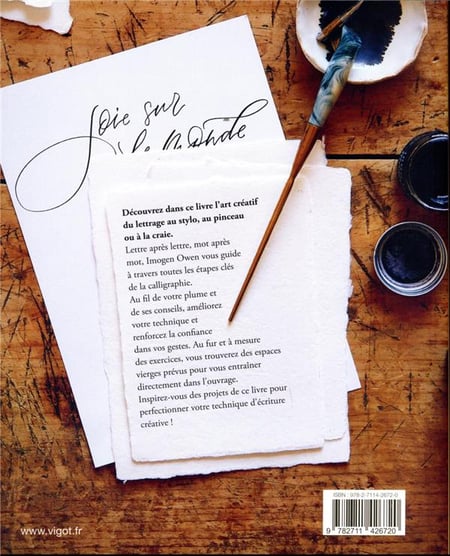 Joie sur
le monde
Découvrez dans ce livre l'art créatif
du lettrage au stylo, au pinceau
ou à la craie.
Lettre après lettre, mot après
mot, Imogen Owen vous guide
à travers toutes les étapes clés
de la calligraphie.
Au fil de votre plume et
de ses conseils, améliorez
votre technique et
renforcez la confiance
dans vos gestes. Au fur et à mesure
des exercices, vous trouverez des espaces
vierges prévus pour vous entraîner
directement dans l'ouvrage.
Inspirez-vous des projets de ce livre pour
perfectionner votre technique d'écriture
créative !
www.vigot.fr
ISBN : 978-2-7114-2672-0
9 782711 426720